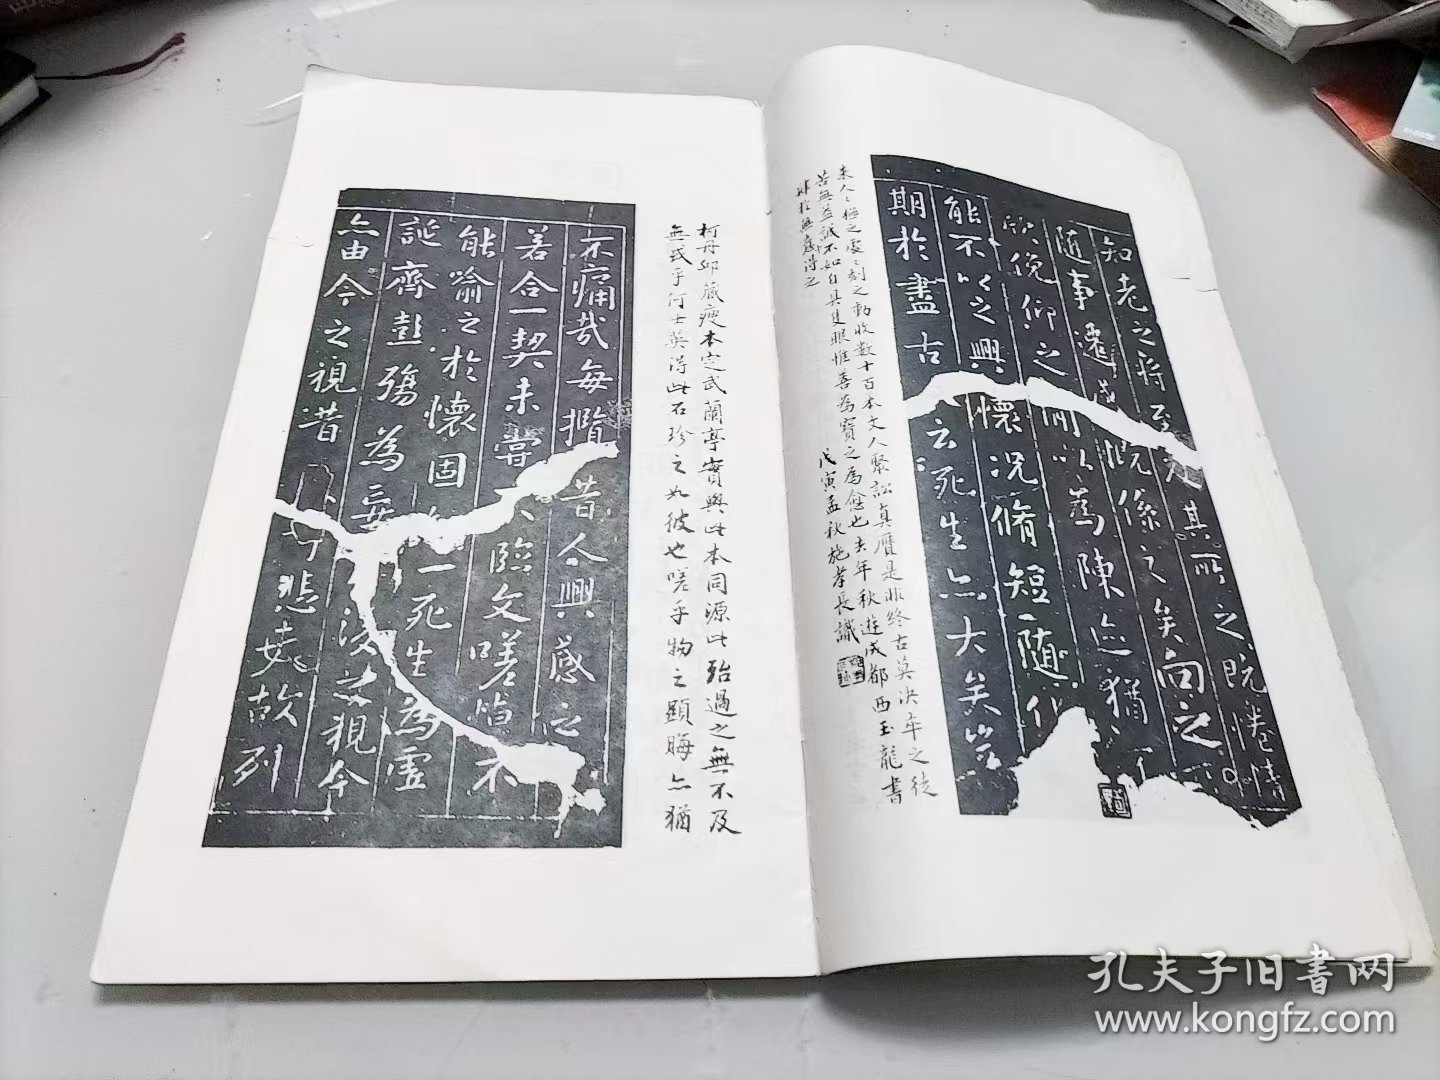 知老之將至其所之既惓情
隨事遷感慨係之矣向之
欣俛仰之間以為陳迹猶不
能不以之興懷況脩短隨化
期於盡古云死生亦大矣豈
來人人極之處處刻之動收數十百本文人聚訟真贗是非終古莫決年之徒
苦無益誠不如自具隻眼惟善為寶之為愈也去年秋遊成都西玉龍書
肆於無意得之
戊寅孟秋施孝長識
柯丹邱藏瘦本定武蘭亭實與此本同源此殆過之無不及
無或乎何士英得此石珍之如彼也嗟乎物之顯晦亦猶
不痛哉每攬昔人興感之
若合一契未嘗不臨文嗟悼不
能喻之於懷固一死生為虛
誕齊彭殤為妄後之視今
亦由今之視昔悲夫故列
孔夫子旧書网
www.kongfz.com